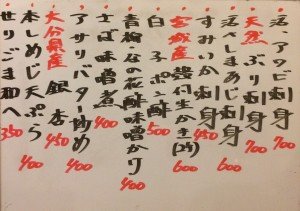 活〆アワビ刺身 700
天然ぶり刺身 700
活〆しまあじ刺身 600
すみいか刺身 450
宮城産殻付生かき(2ケ) 600
白子ポン酢 500
青柳・谷の花酢味噌がけ 400
さば味噌煮 400
アサリバター炒め 400
大分県産銀杏 450
本しめじ天ぷら 400
せりごま和へ 350